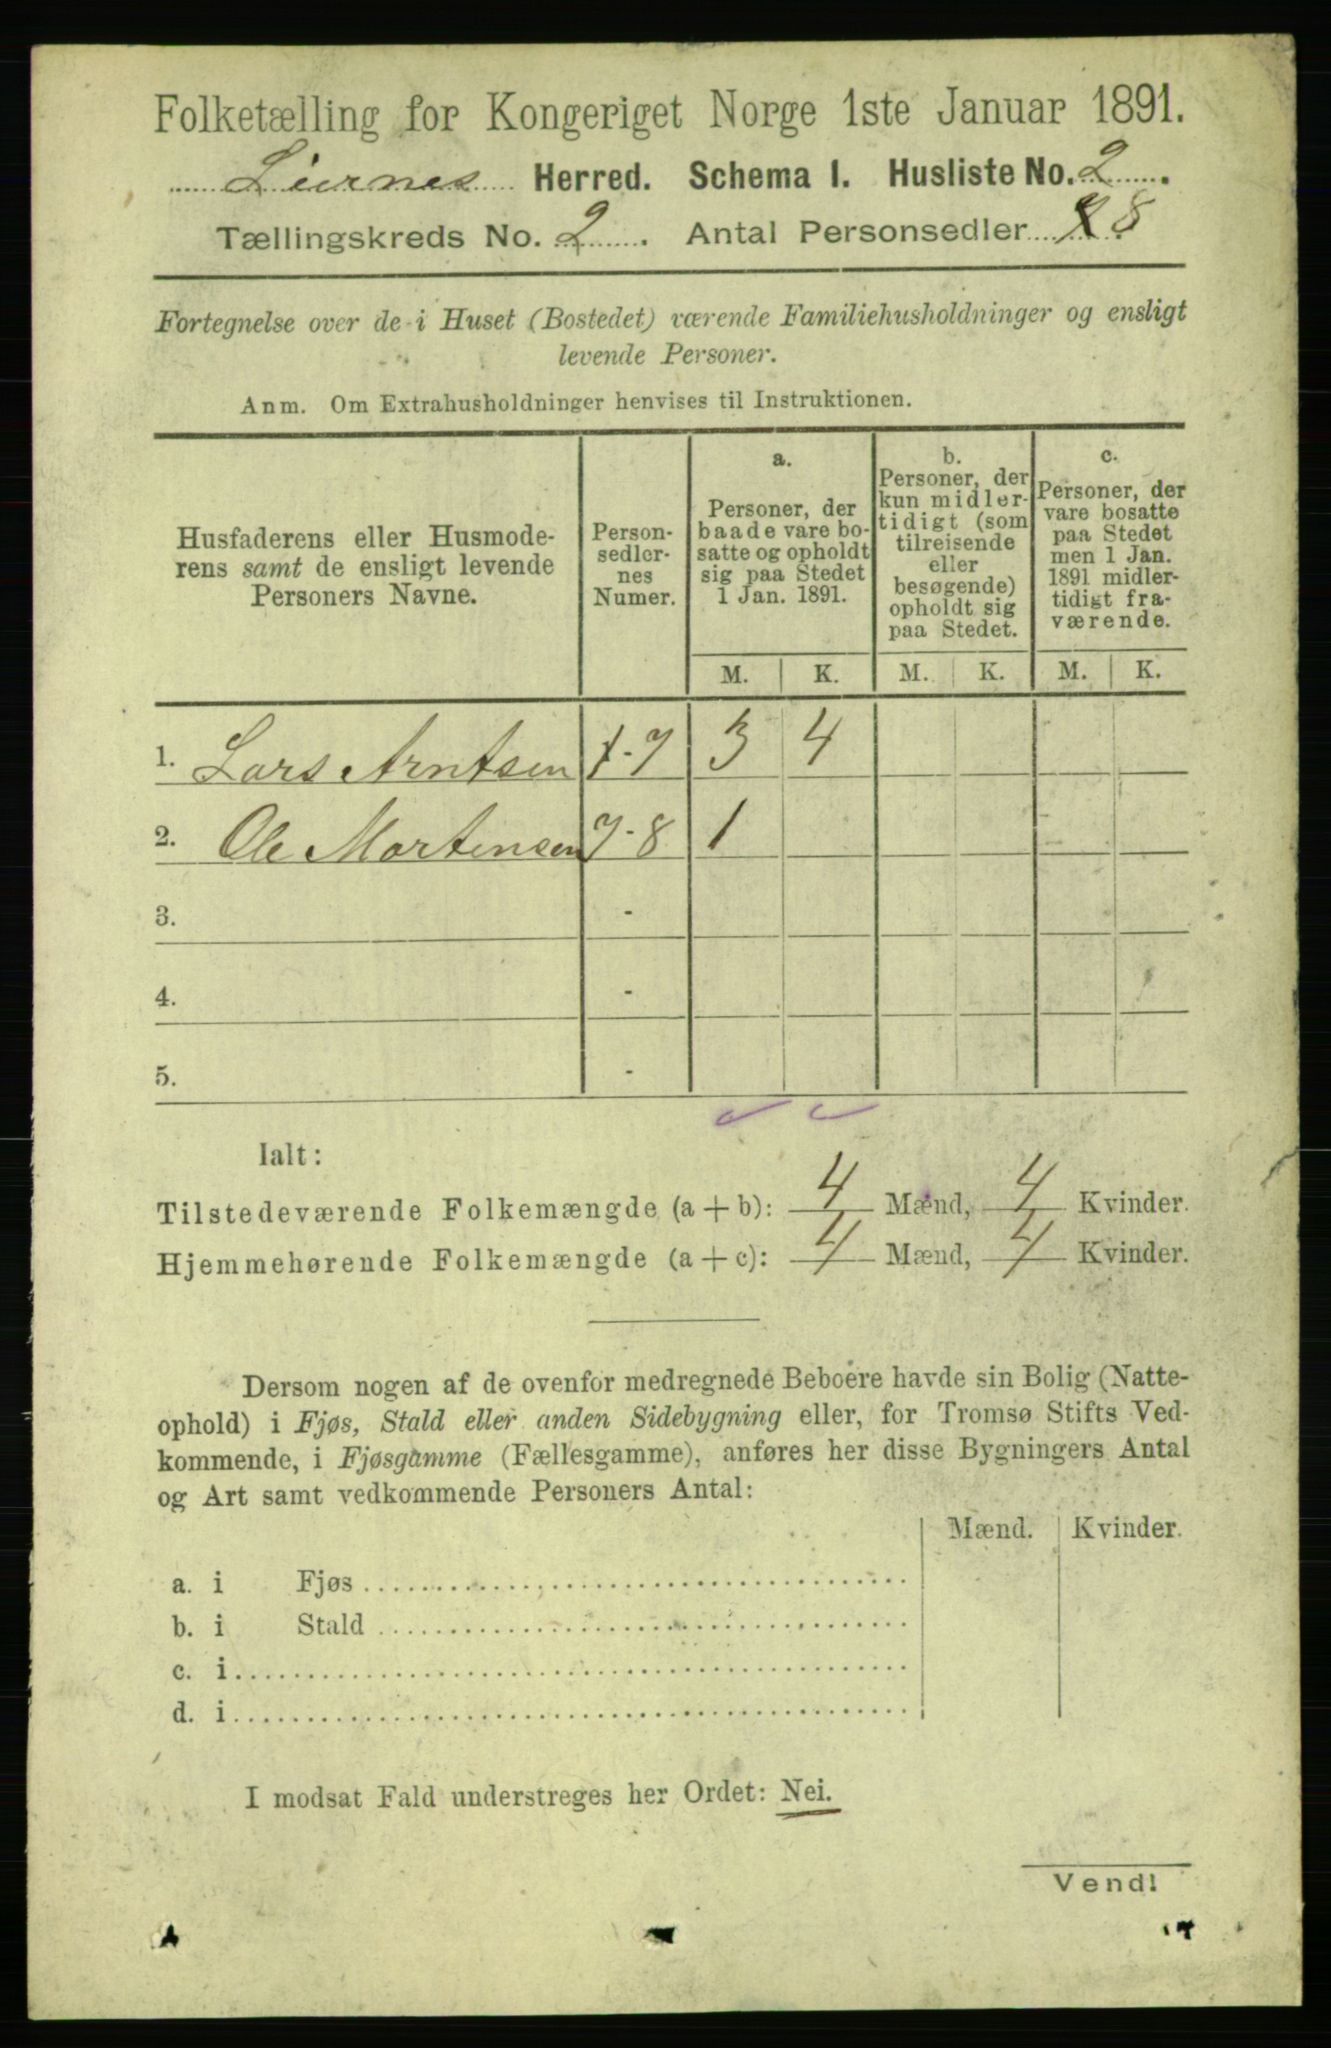 Folketælling for Kongeriget Norge 1ste Januar 1891.
Herred. Schema 1. Husliste No. 2
Tællingskreds No. 2. Antal Personsedler 8
Fortegnelse over de i Huset (Bostedet) værende Familiehusholdninger og ensligt
levende Personer.
Anm. Om Extrahusholdninger henvises til Instruktionen.
Husfaderens eller Husmode-
rens samt de ensligt levende
Personers Navne.
Person-
sedler-
nes
Numer.
a.
Personer, der
baade vare bo-
satte og opholdt
sig paa Stedet
1 Jan. 1891.
b.
Personer, der
kun midler-
tidigt (som
tilreisende
eller
besøgende)
opholdt sig
paa Stedet.
c.
Personer, der
vare bosatte
paa Stedet
men 1 Jan.
1891 midler-
tidigt fra-
værende.
M. K. M. K. M. K.
1. Lars Arntsen 1-7 3 4
2. Ole Mortensen 7-8 1
3. -
4. -
5. -
Ialt:
Tilstedeværende Folkemængde (a + b): 4 Mænd, 4 Kvinder.
Hjemmehørende Folkemængde (a + c): 4 Mænd, 4 Kvinder.
Dersom nogen af de ovenfor medregnede Beboere havde sin Bolig (Natte-
ophold) i Fjøs, Stald eller anden Sidebygning eller, for Tromsø Stifts Ved-
kommende, i Fjøsgamme (Fællesgamme), anføres her disse Bygningers Antal
og Art samt vedkommende Personers Antal:
Mænd. Kvinder.
a. i Fjøs
b. i Stald
c. i
d. i
I modsat Fald understreges her Ordet: Nei.
Vend!